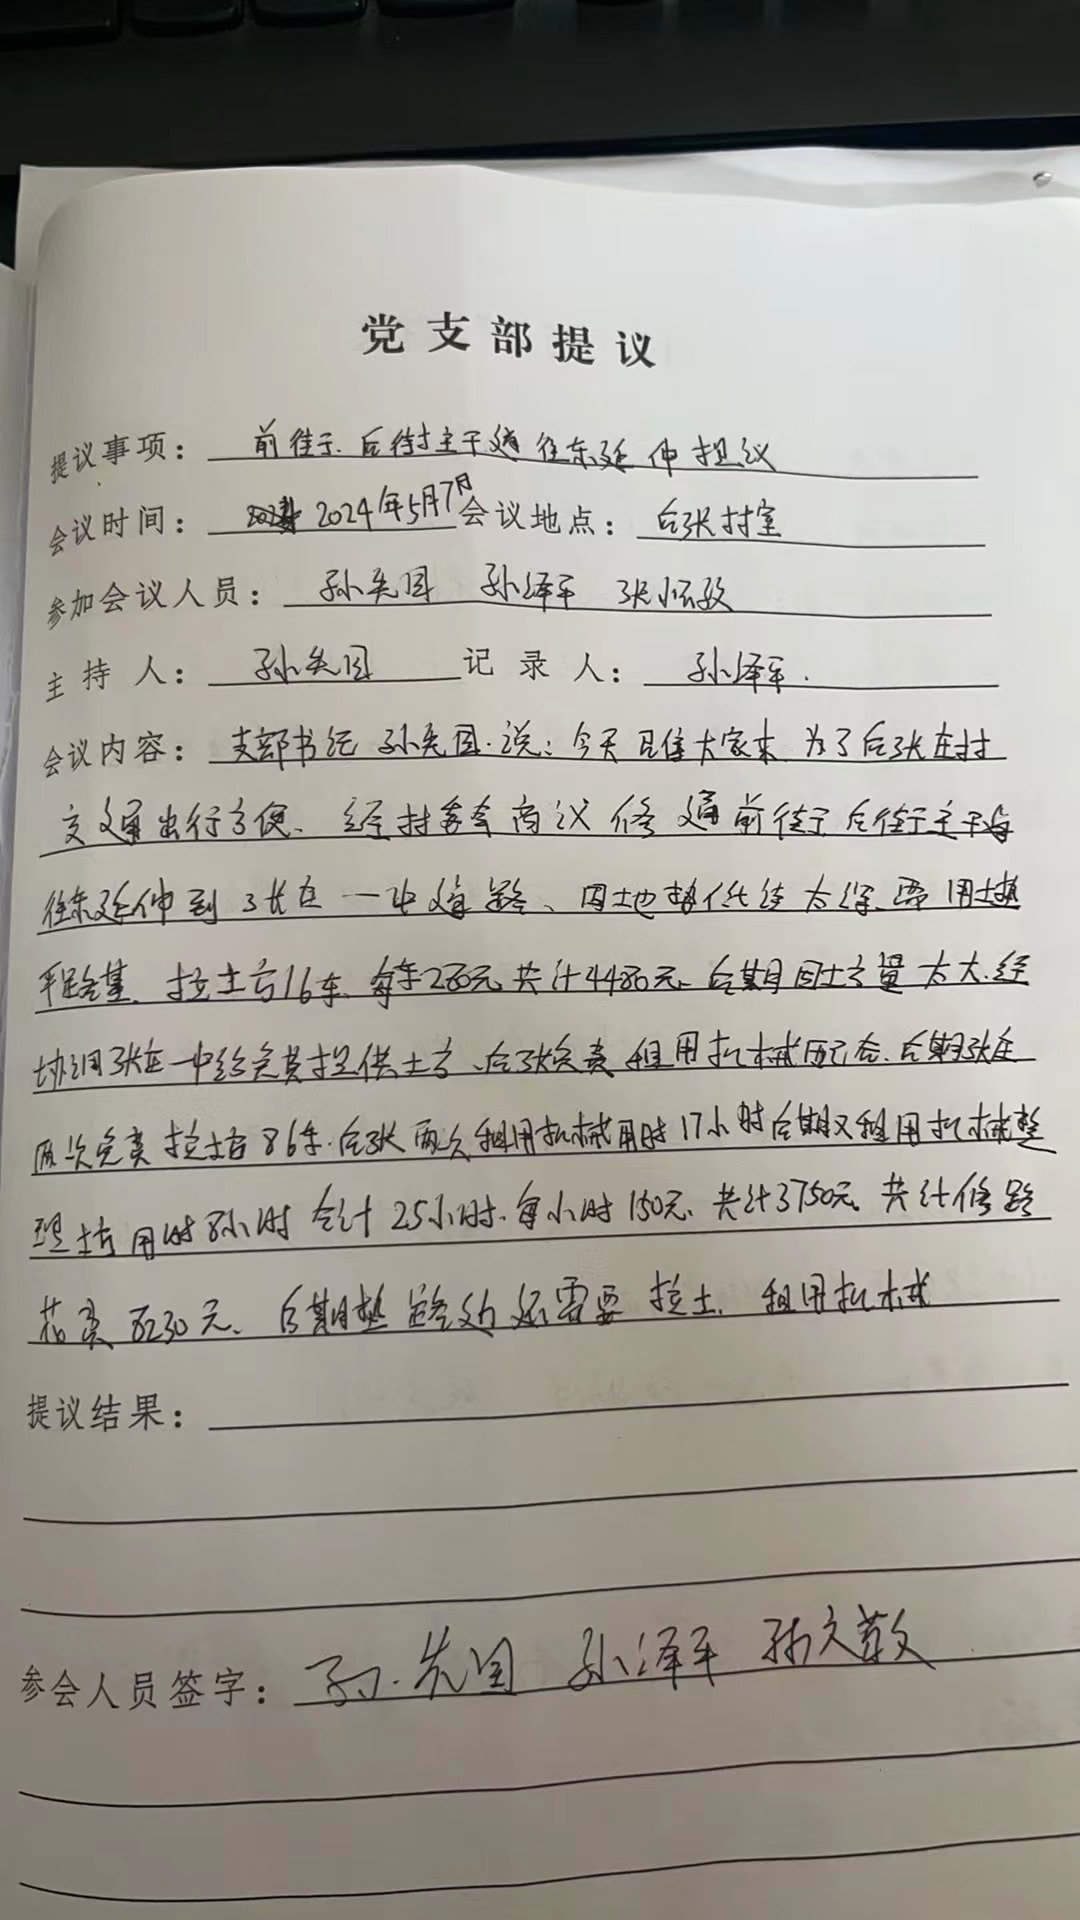 党支部提议
提议事项： 前街于、后街主干道往东延伸提议
会议时间： 2024年5月7日 会议地点： 后张村室
参加会议人员： 孙先国 孙泽军
主持人： 孙先国 记录人： 孙泽军.
会议内容： 支部书记 孙先国.说：今天召集大家来 为了后张庄村
交通出行方便、经村委会商议 修通前街于后街主干道
往东延伸到张庄一中道路、因地势低洼太深、需用土垫
平路基、拉土方16车、每车280元共计4480元、后期因土方量太大.经
协调张庄一中免费提供土方、后张负责租用机械配合、后期张庄
两次免费拉土方86车.后张两次租用机械用时17小时后期又租用机械整
理土方用时8小时 合计25小时、每小时150元、共计3750元 共计修路
花费8230元、后期垫路 还需要拉土、租用机械
提议结果：
参会人员签字： 孙先国 孙泽军